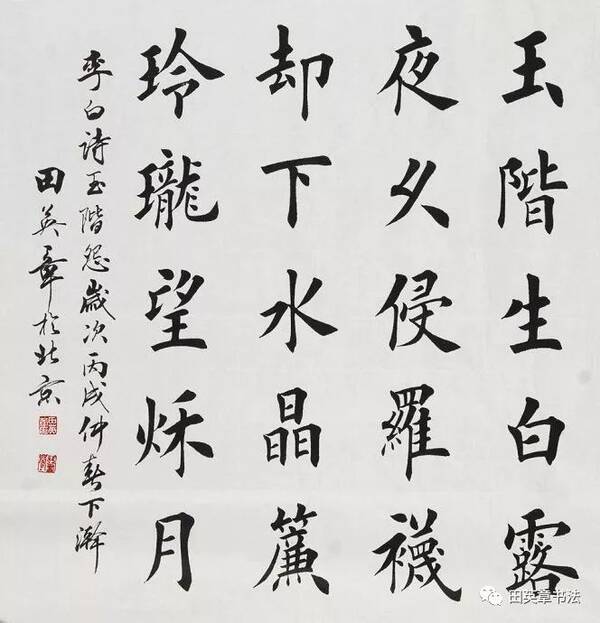 玉階生白露
夜久侵羅襪
却下水晶簾
玲瓏望秌月
李白诗玉階怨歲次丙戌仲春下澣
田英章於北京
田英章书法